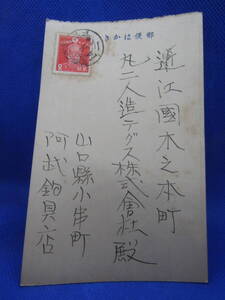 郵便はかき
近江國木之本町
丸二人造テグス株式會社殿
山口縣小串町
阿武釣具店